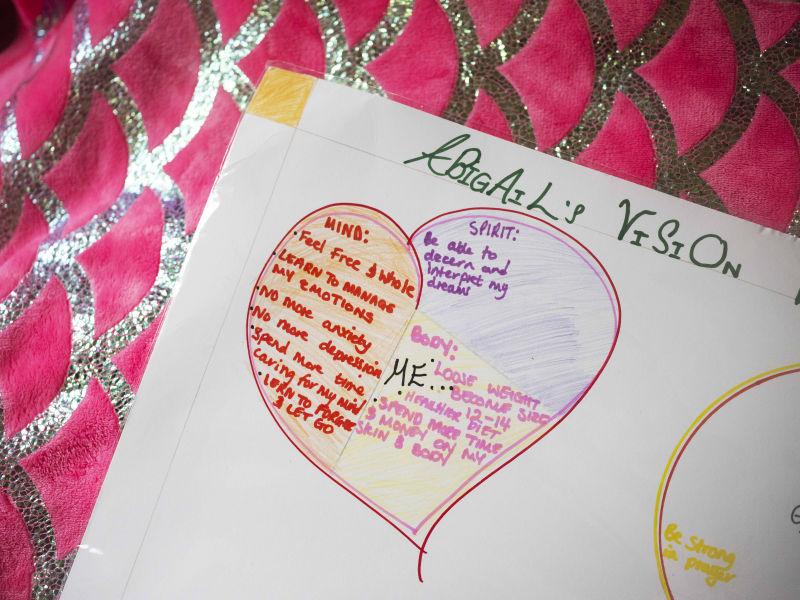 ABIGAIL's VISION
MIND:
• Feel free & whole
• LEARN TO MANAGE
MY EMOTIONS
• NO more anxiety
• NO more depression
• Spend more time
caring for my mind
• LERN TO FORGIVE
& LET GO
SPIRIT:
Be able to
decern and
interpret my
dreams
ME...
BODY:
• LOOSE WEIGHT
BECOME SIZE
12-14
• HEALTHIER DIET
• SPEND MORE TIME
& MONEY ON MY
SKIN & BODY
Be Strong
in prayer